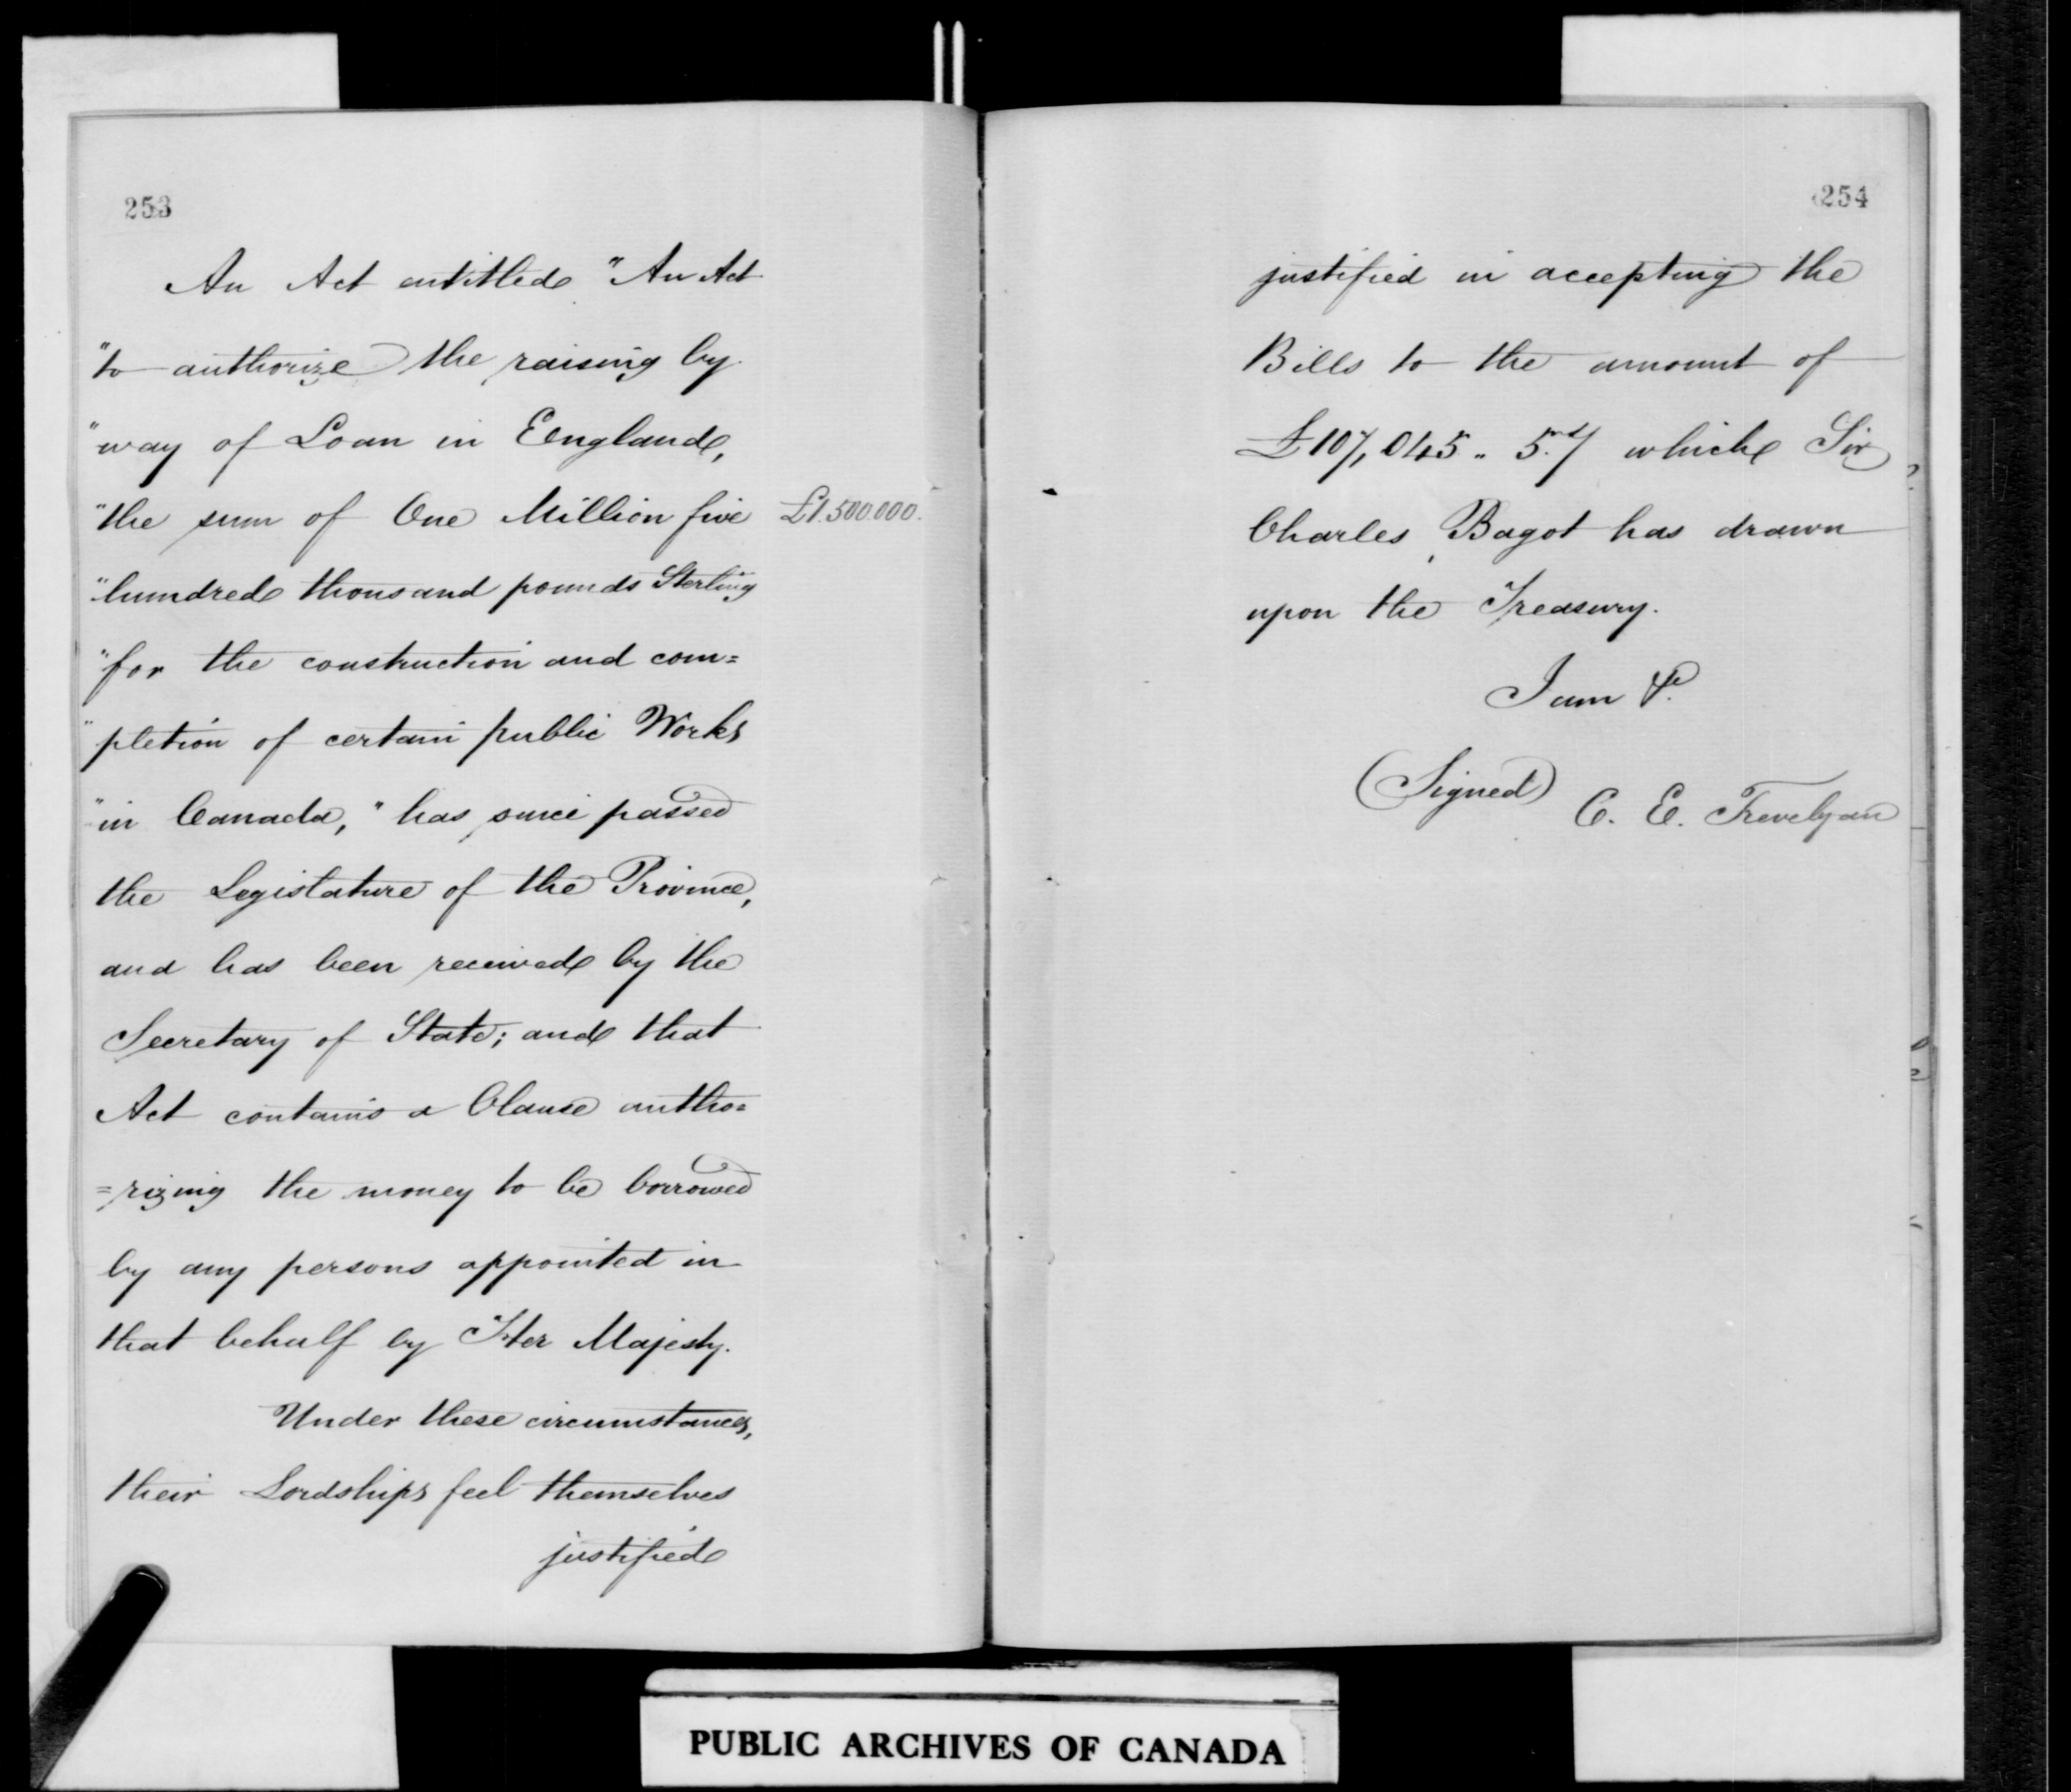 253
An Act entitled "An Act
"to authorize the raising by
"way of Loan in England,
"the sum of One Million five £1.500.000.
"hundred thousand pounds Sterling
"for the construction and com=
"pletion of certain public Works
"in Canada," has since passed
the Legislature of the Province,
and has been received by the
Secretary of State; and that
Act contains a Clause autho=
=rizing the money to be borrowed
by any persons appointed in
that behalf by Her Majesty.
Under these circumstances,
their Lordships feel themselves
justified
254
justified in accepting the
Bills to the amount of
£107,045 " 5. 7 which Sir
Charles Bagot has drawn
upon the Treasury.
I am &c.
(Signed) C. E. Trevelyan
PUBLIC ARCHIVES OF CANADA